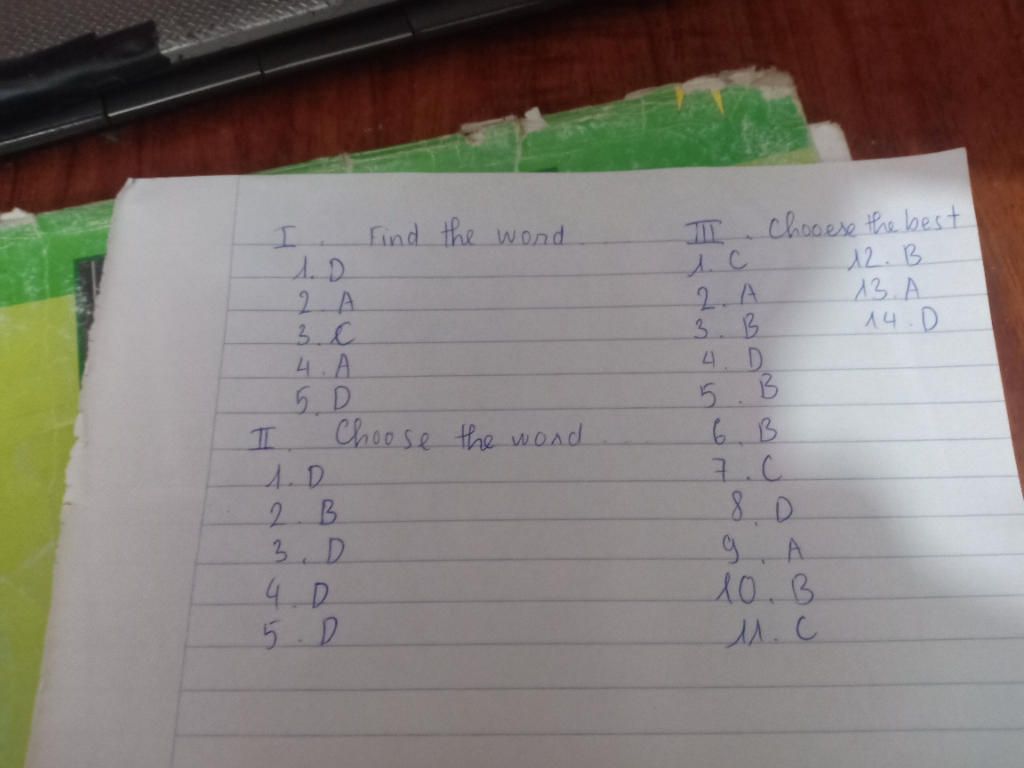 I. Find the word
1. D
2. A
3. C
4. A
5. D
II. Choose the word
1. D
2. B
3. D
4. D
5. D
III. Chooese the best
1. C
2. A
3. B
4. D
5. B
6. B
7. C
8. D
9. A
10. B
11. C
12. B
13. A
14. D